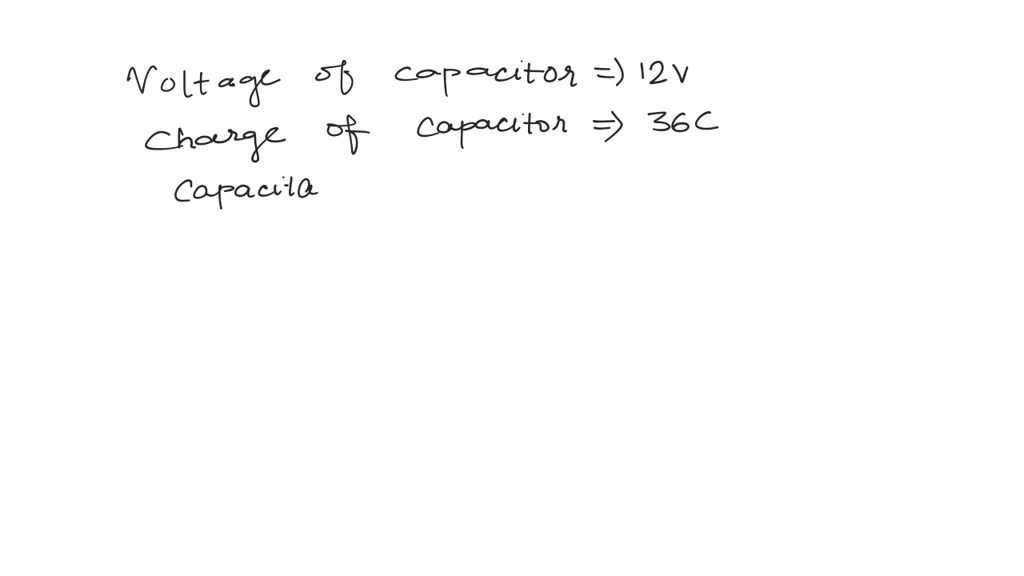 Voltage of capacitor => 12V
Charge of capacitor => 36C
Capacita